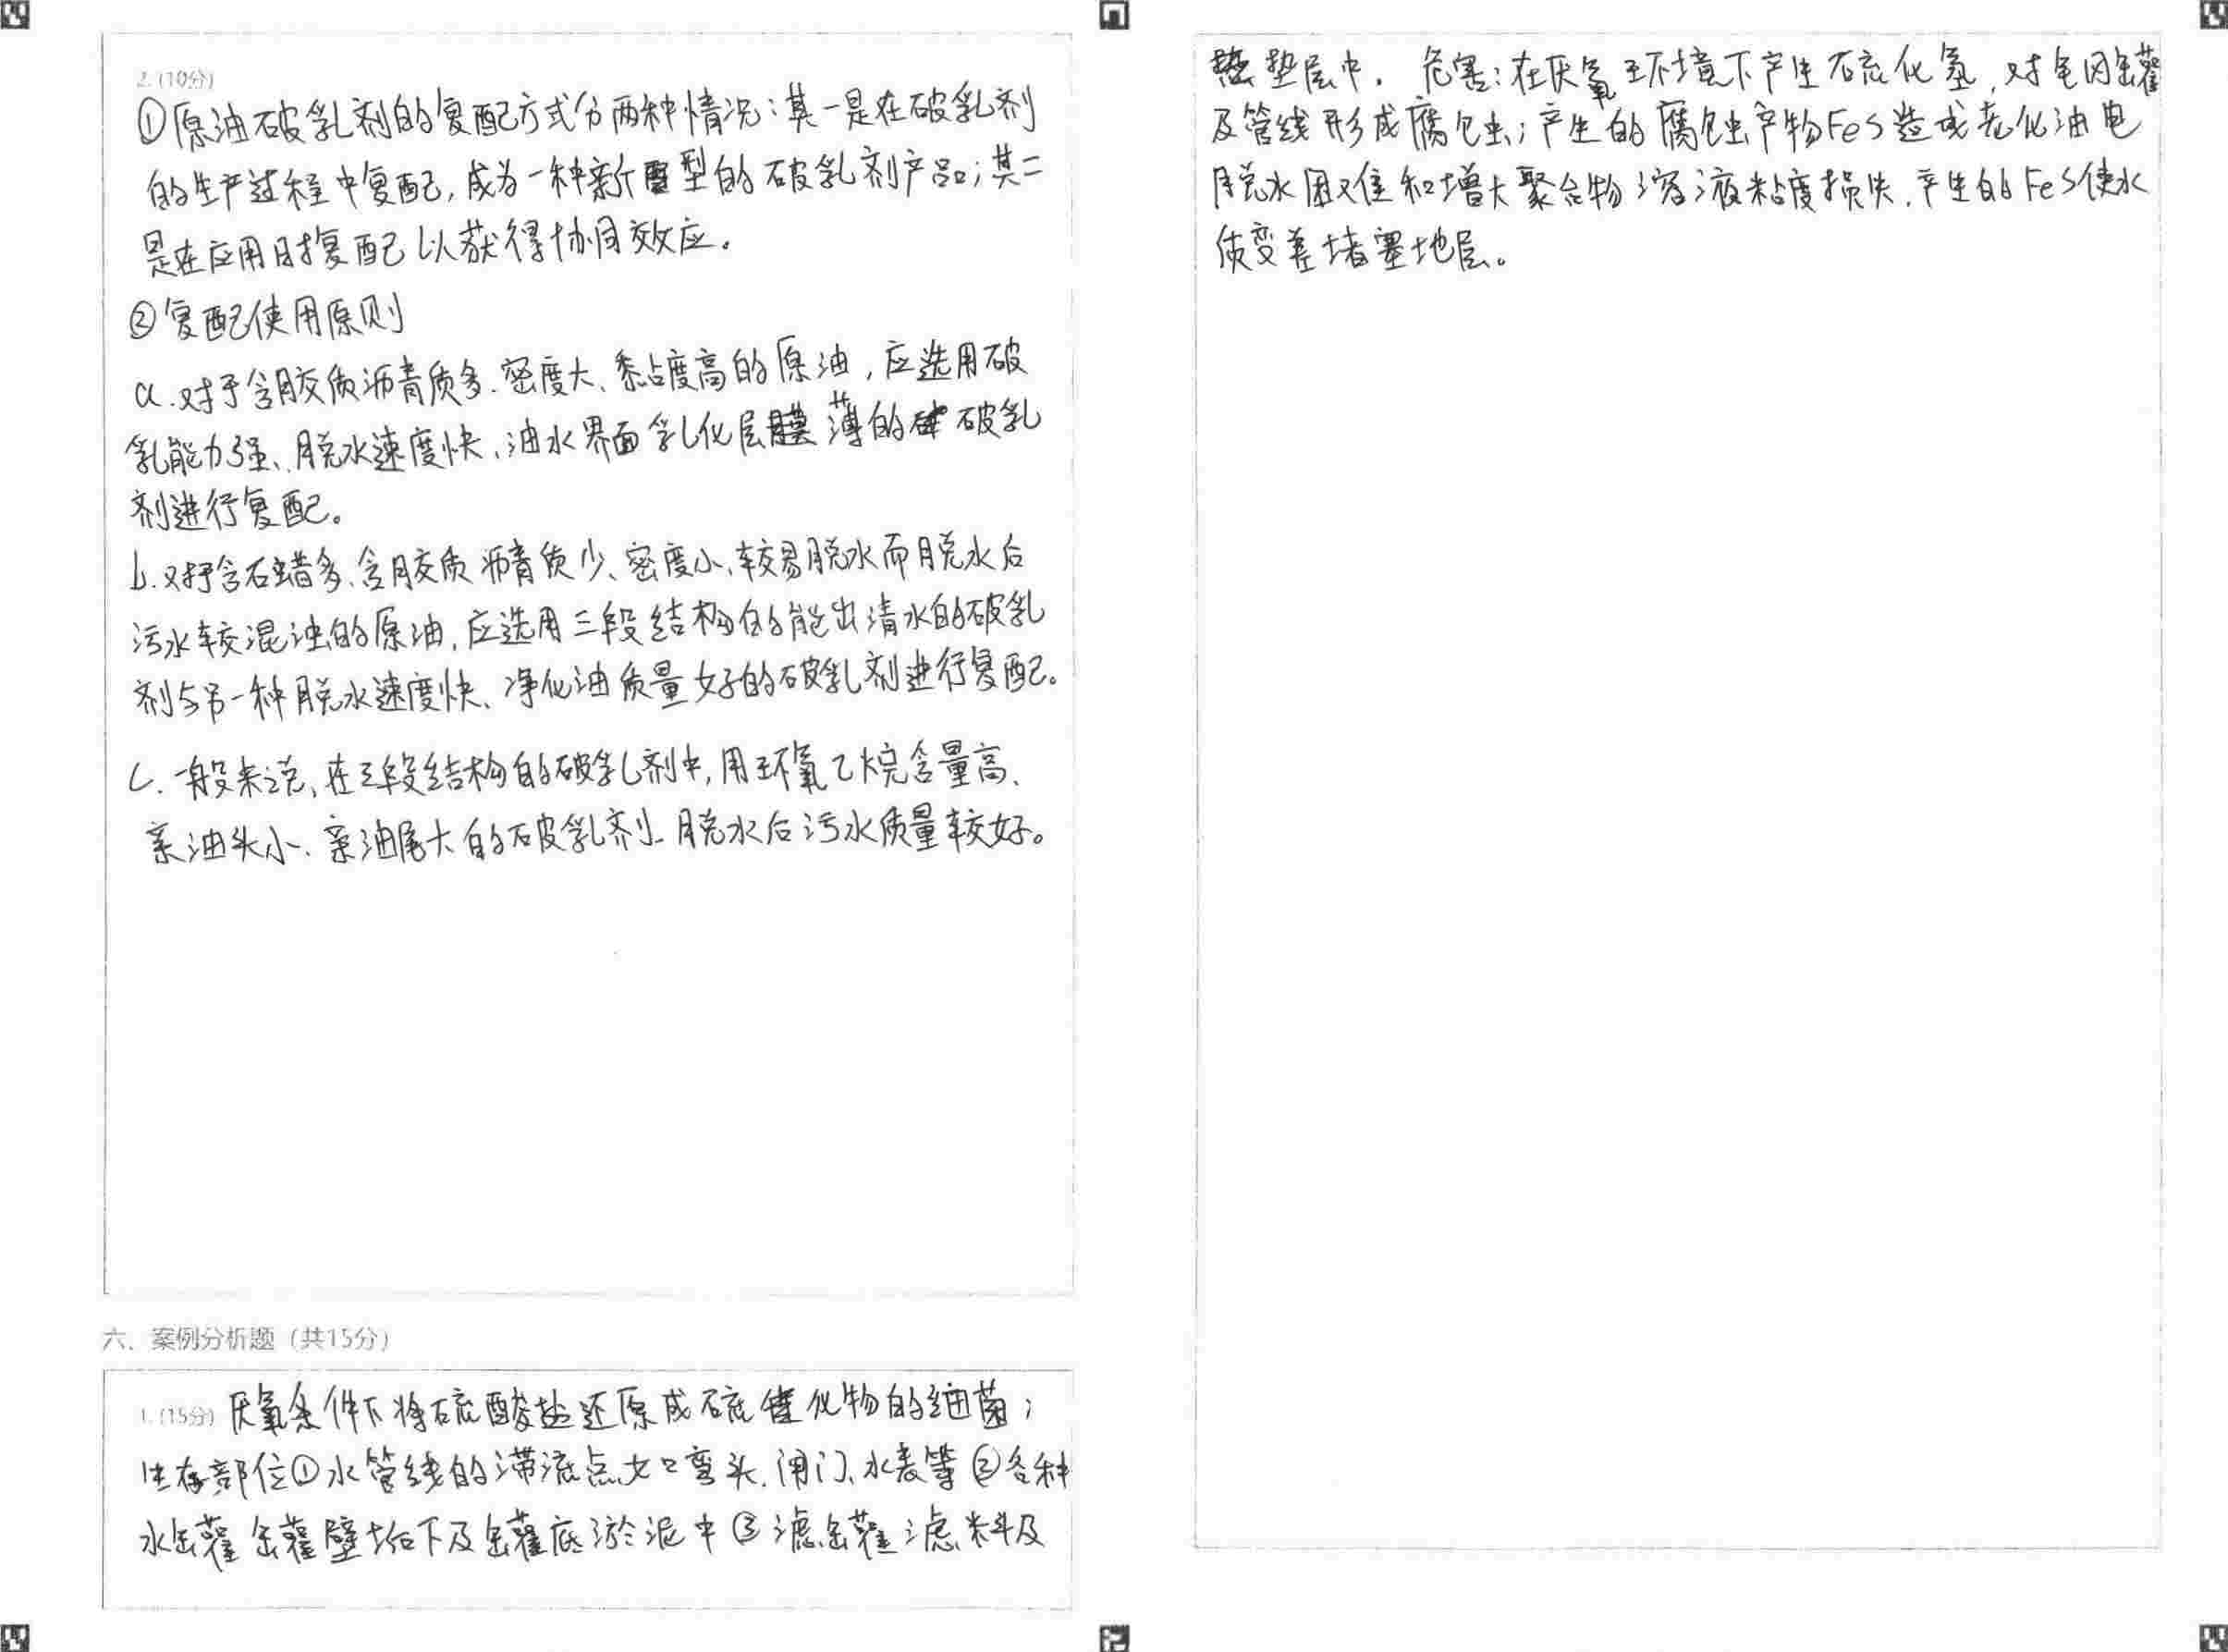 2. (10分)
①原油破乳剂的复配方式分两种情况：其一是在破乳剂
的生产过程中复配，成为一种新型的破乳剂产品；其二
是在应用时复配以获得协同效应。
②复配使用原则
a.对于含胶质沥青质多、密度大、黏度高的原油，应选用破
乳能力强、脱水速度快、油水界面乳化层薄的破乳
剂进行复配。
b.对于含石蜡多、含胶质沥青质少、密度小、较易脱水而脱水后
污水较混浊的原油，应选用三段结构的能出清水的破乳
剂与另一种脱水速度快、净化油质量好的破乳剂进行复配。
c.一般来说，在三段结构的破乳剂中，用环氧乙烷含量高、
亲油头小、亲油尾大的破乳剂脱水后污水质量较好。
六、案例分析题（共15分）
1. (15分) 厌氧条件下将硫酸盐还原成硫化物的细菌；
生存部位①水管线的滞流点如弯头、闸门、水表等②各种
水罐罐壁垢下及罐底淤泥中③滤罐滤料及
垫层中。危害：在厌氧环境下产生硫化氢，对电网罐
及管线形成腐蚀；产生的腐蚀产物FeS造成老化油电
脱水困难和增大聚合物溶液粘度损失，产生的FeS使水
质变差堵塞地层。